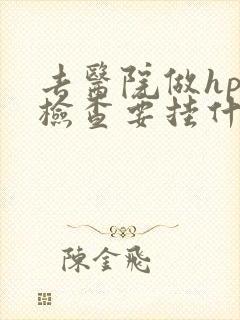 去醫院做hp
檢查要挂什
陳金飛